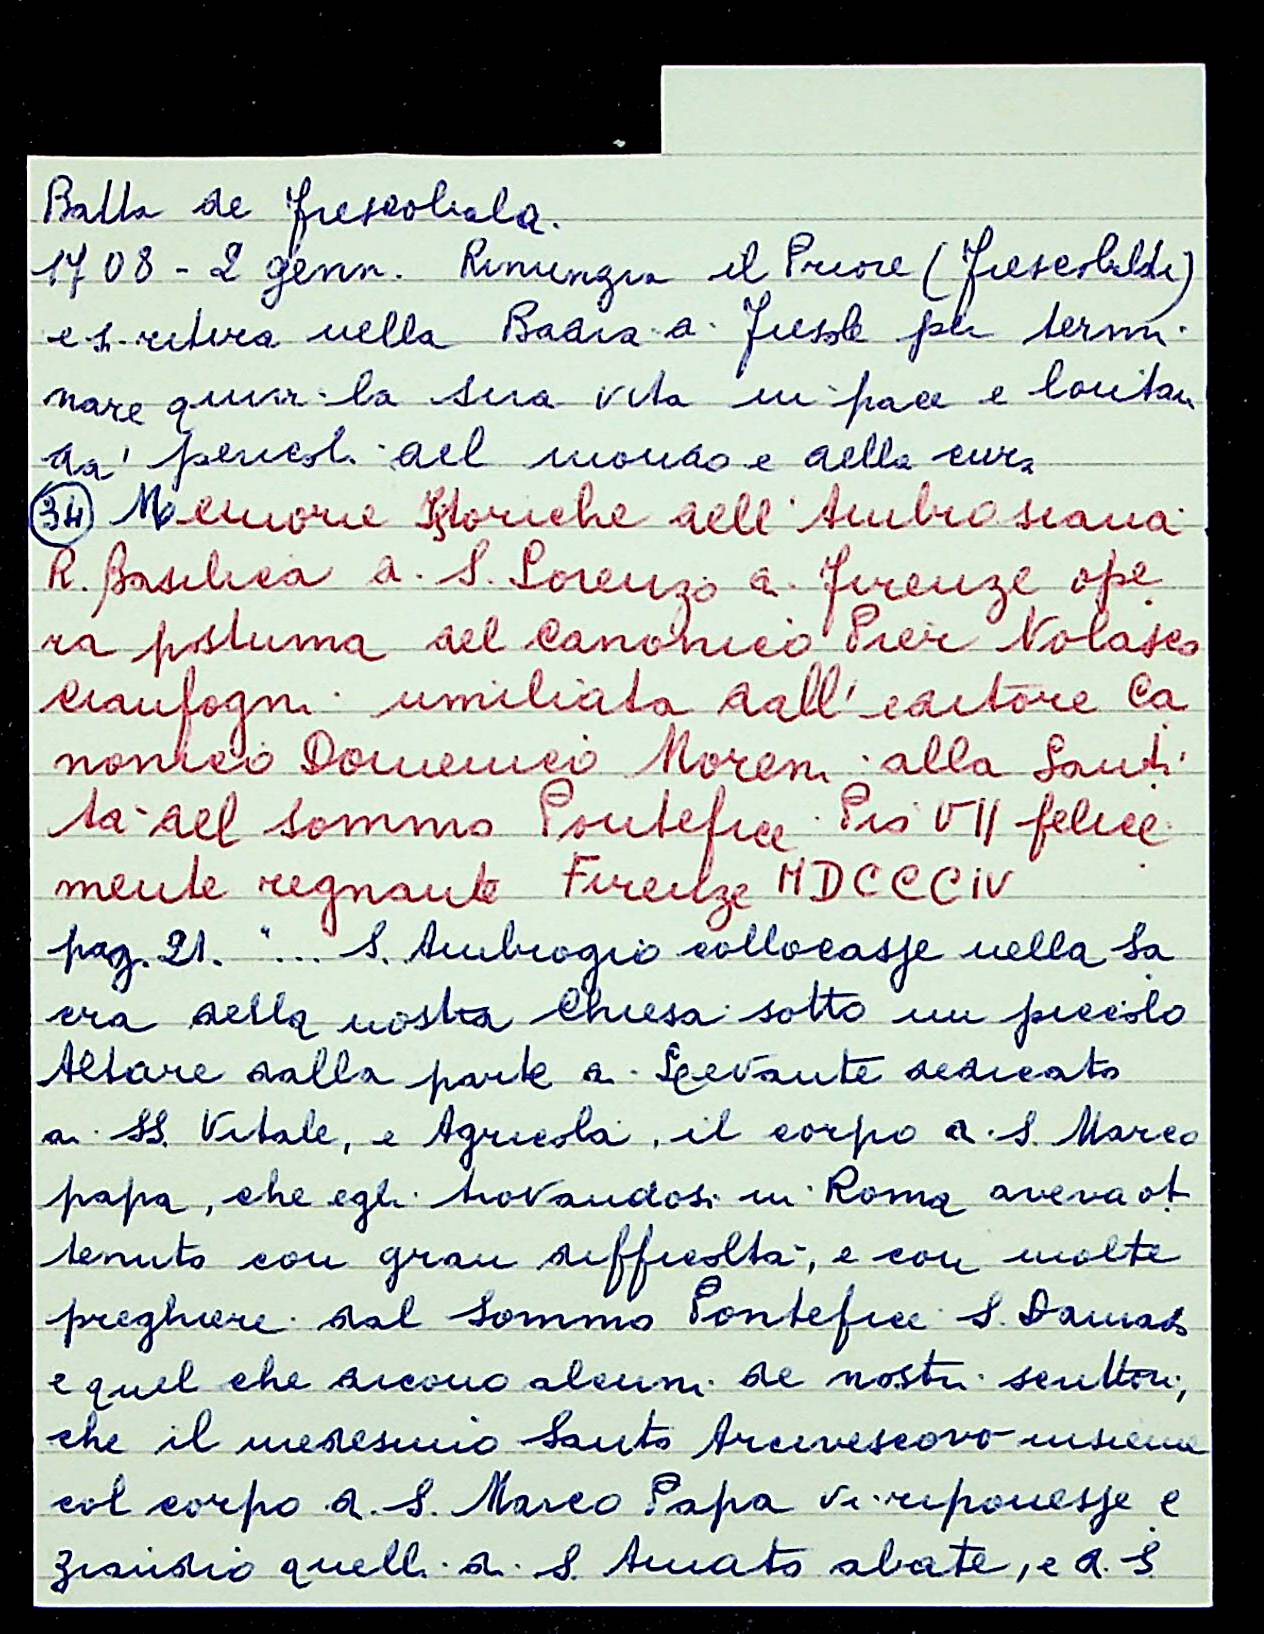 Batta de Frescobaldi.
1708 - 2 genn. Rinunzia il Priore (Frescobaldi)
e si ritira nella Badia di Fiesole per termi
nare quivi la sua vita in pace e lontan
da' pericoli del mondo e della cura
34 Memorie Istoriche dell'Ambrosiana
R. Basilica di S. Lorenzo di Firenze ope
ra postuma del Canonico Pier Nolasco
Cianfogni umiliata dall'editore Ca
nonico Domenico Moreni alla Santi
tà del sommo Pontefice Pio VII felice
mente regnante Firenze MDCCCIV
pag. 21. "... S. Ambrogio collocasse nella Sa
cra della nostra Chiesa sotto un piccolo
Altare dalla parte di Levante dedicato
ai SS. Vitale, e Agricola, il corpo di S. Marco
papa, che egli trovandosi in Roma aveva ot
tenuto con gran difficoltà, e con molte
preghiere dal Sommo Pontefice S. Damaso
e quel che dicono alcuni de nostri scrittori,
che il medesimo Santo Arcivescovo insieme
col corpo di S. Marco Papa vi riponesse e
ziandio quelli di S. Amato abate, e di S.